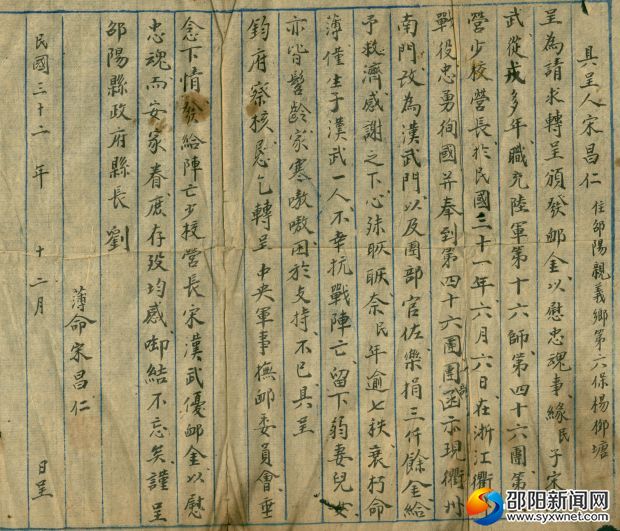 具呈人宋昌仁 住邵陽親義鄉第六保楊柳塘
呈為請求轉呈頒發卹金以慰忠魂事緣民子宋
武從戎多年職充陸軍第十六師第四十六團第
營少校營長於民國三十一年六月六日在浙江衢
戰役忠勇徇國并奉到第四十六團團函示現衢州
南門改為漢武門以及團部官佐樂捐三仟餘金給
予救濟感謝之下心殊耿耿奈民年逾七秩衰朽命
薄僅生子漢武一人不幸抗戰陣亡留下弱妻兒女
亦皆髫齡家寒嗷嗷困於支持不已具呈
鈞府察核懇乞轉呈 中央軍事撫卹委員會垂
念下情發給陣亡少校營長宋漢武優卹金以慰
忠魂而安家眷庶存歿均感啣結不忘矣謹呈
邵陽縣政府縣長 劉
薄命宋昌仁
民國三十二年 十二月 日呈
邵阳新闻网
www.syxwnet.com